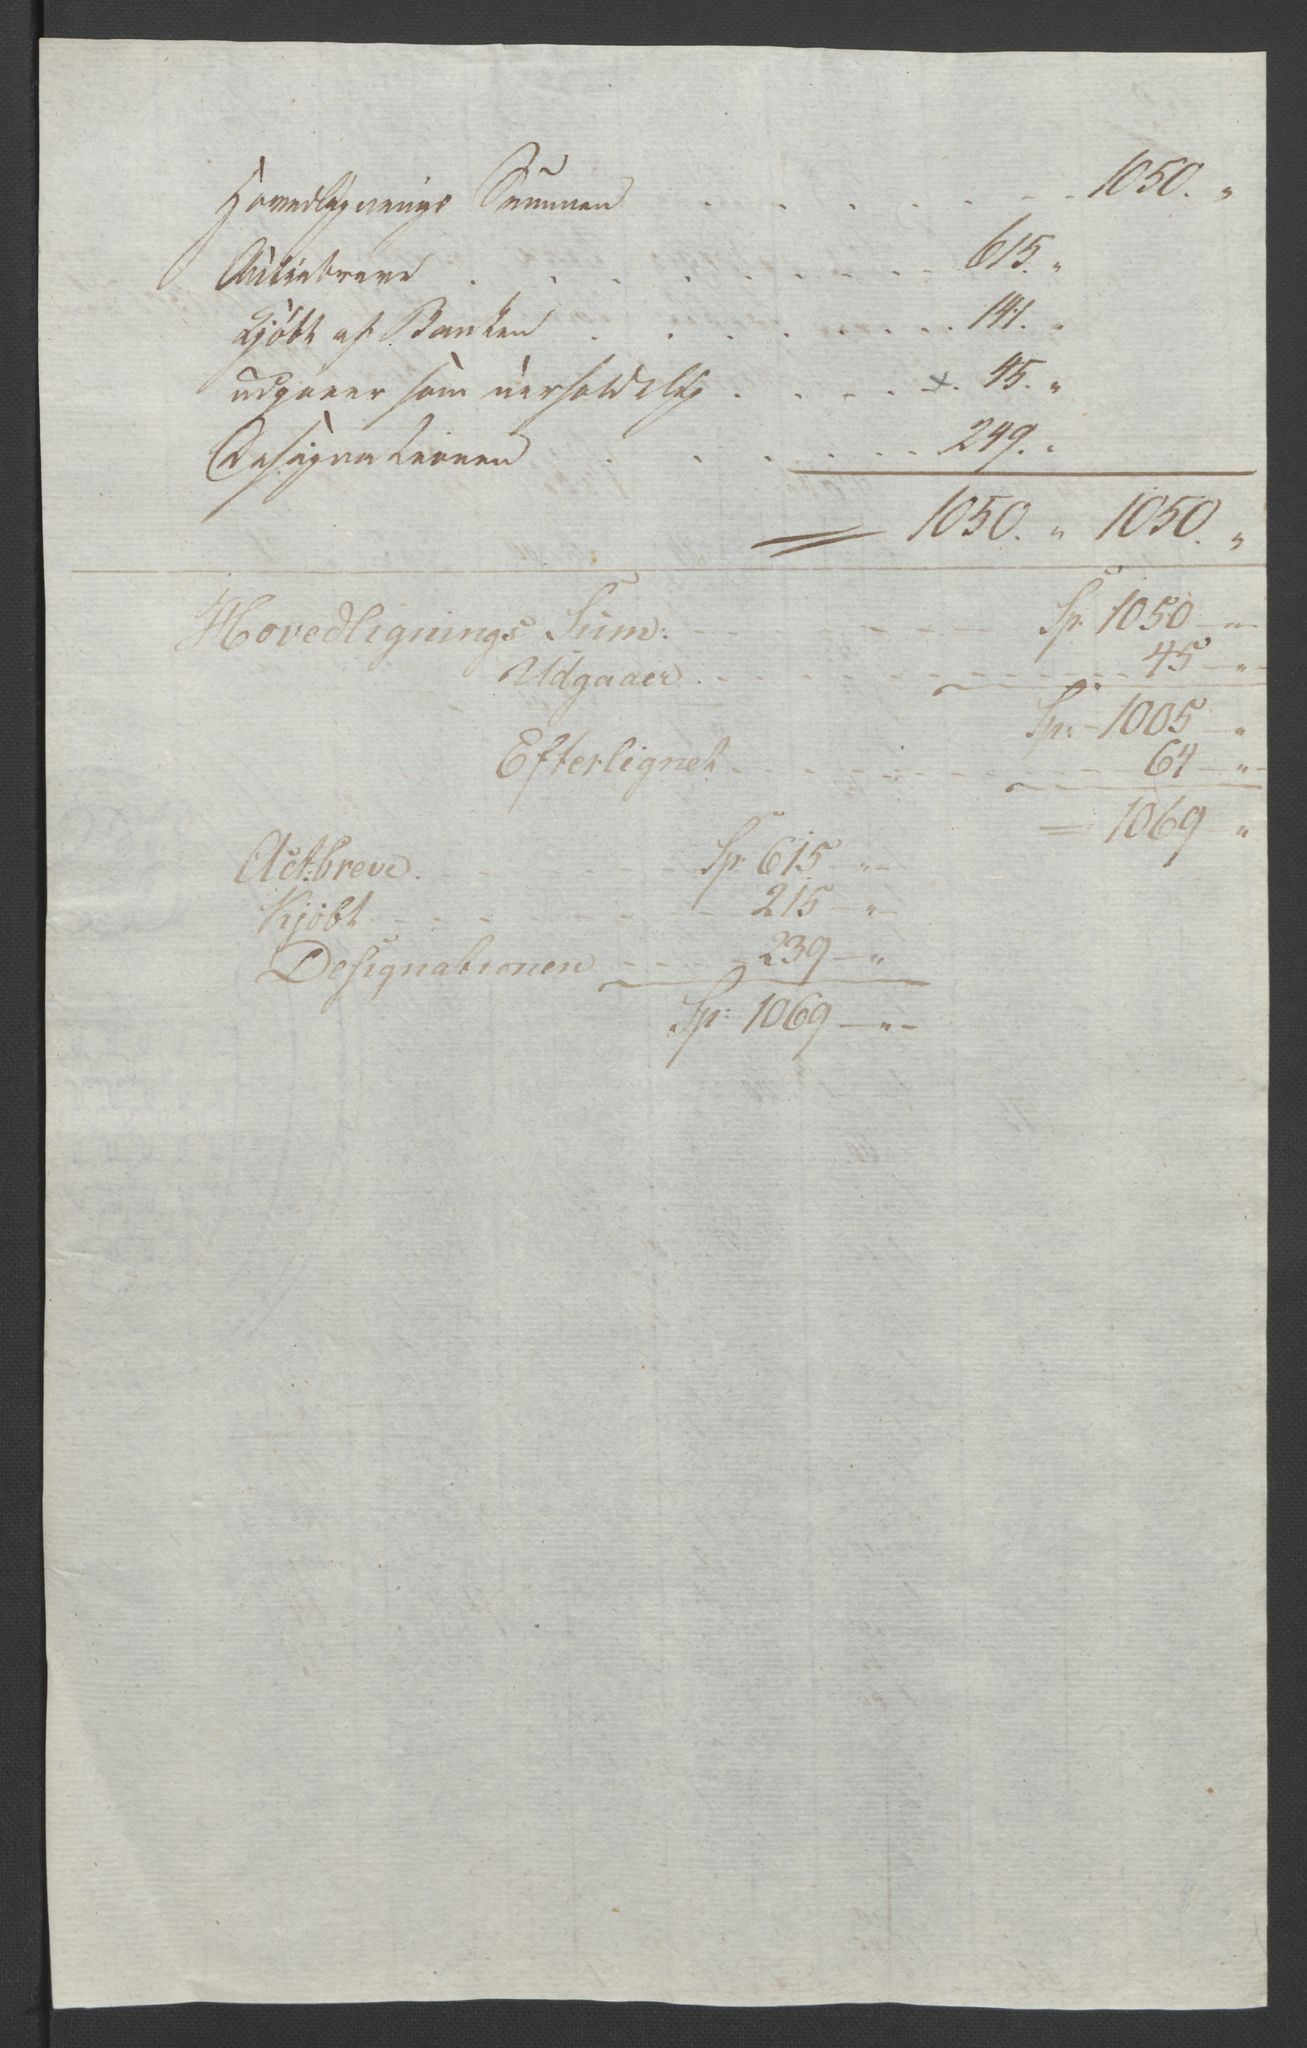 Hovedlignings Summen . . . . . . . 1050. "
Actiebreve . . . . . . . . 615. "
Kjöbt af Banken . . . . . . . 141. "
udgaaer som uerholdelig . . . . x. 45. "
Designationen . . . . . . 249. "
1050. " 1050. "
Hovedlignings Sum: Sp. 1050 — "
Udgaaer . . . . 45 — "
Sp: 1005 "
Efterlignet . . . . 64 — "
1069 "
Act:breve. Sp. 615 — "
Kjöbt 215 — "
Designationen 239 — "
Sp: 1069 — "